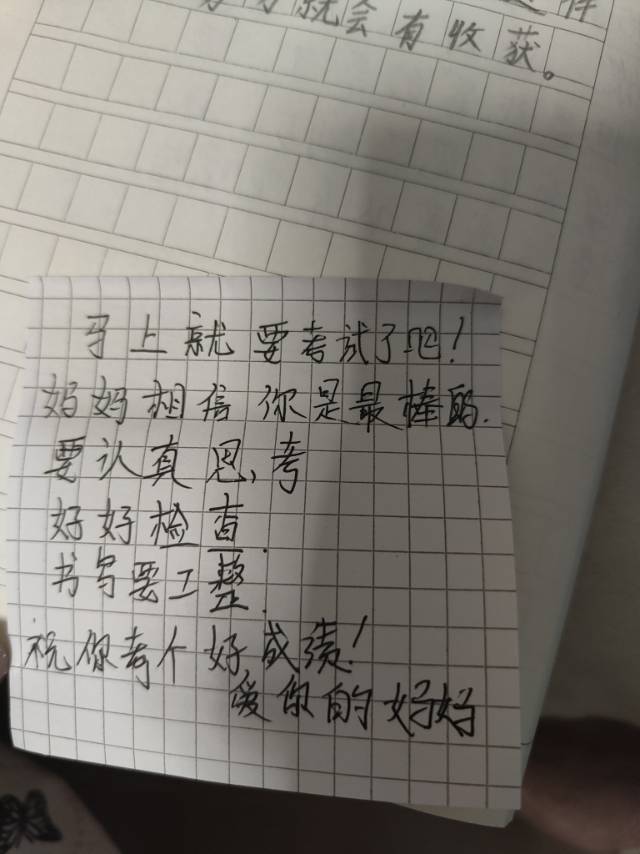 就会有收获。
马上就要考试了吧！
妈妈相信你是最棒的.
要认真思,考
好好检查.
书写要工整.
祝你考个好成绩！
爱你的妈妈